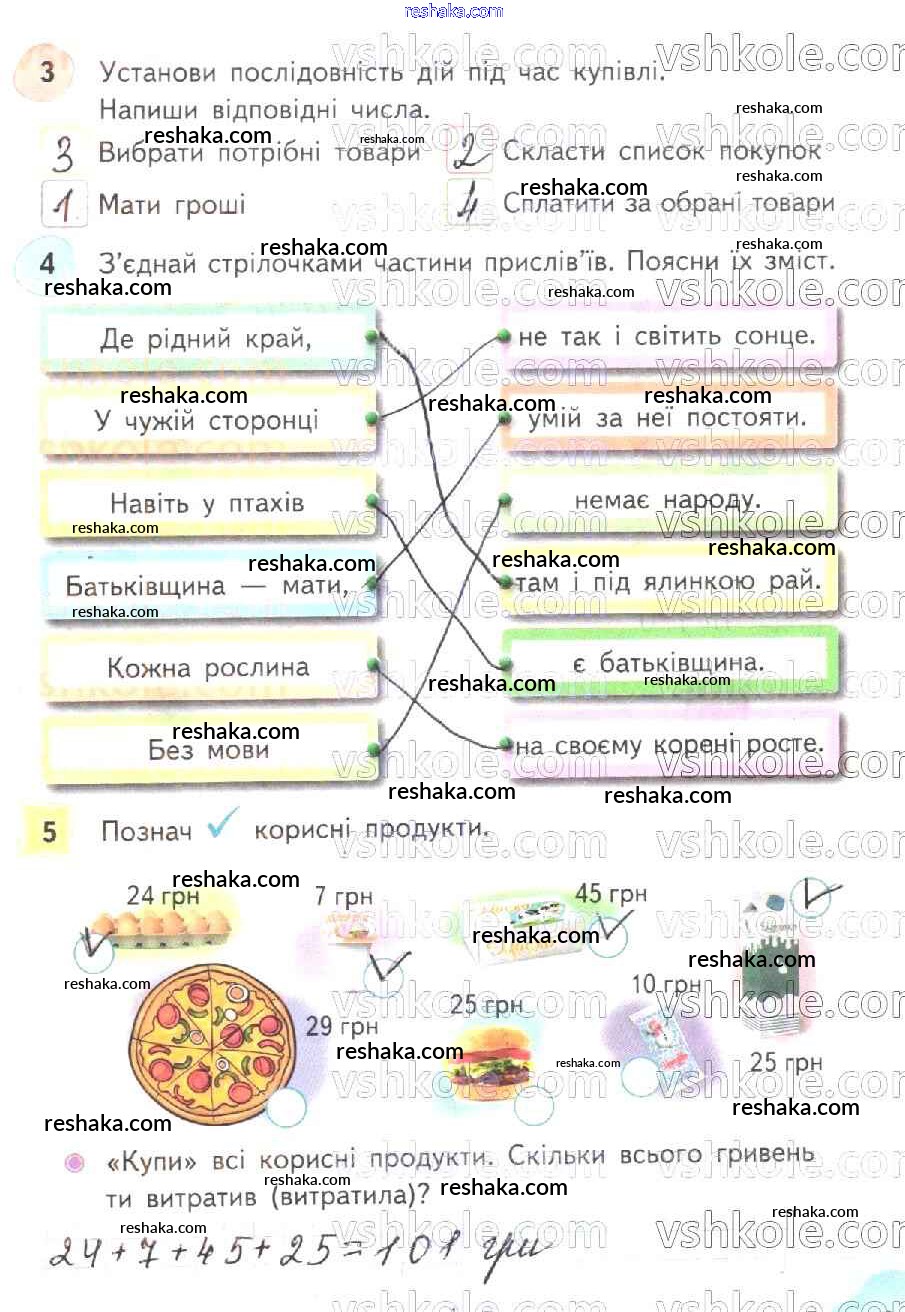 reshaka.com
3 Установи послідовність дій під час купівлі.
Напиши відповідні числа.
3 Вибрати потрібні товари 2 Скласти список покупок
1 Мати гроші 4 Сплатити за обрані товари
4 З'єднай стрілочками частини прислів'їв. Поясни їх зміст.
Де рідний край, не так і світить сонце.
У чужій сторонці умій за неї постояти.
Навіть у птахів немає народу.
Батьківщина — мати, там і під ялинкою рай.
Кожна рослина є батьківщина.
Без мови на своєму корені росте.
5 Познач ✓ корисні продукти.
24 грн 7 грн 45 грн
29 грн 25 грн 10 грн 25 грн
«Купи» всі корисні продукти. Скільки всього гривень
ти витратив (витратила)?
24+7+45+25=101 грн
vshkole.com